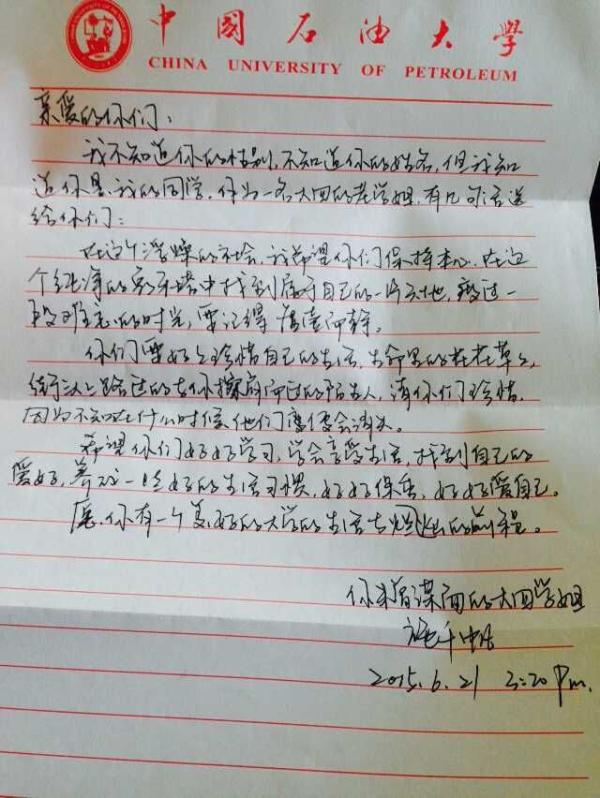 中国石油大学
CHINA UNIVERSITY OF PETROLEUM
亲爱的你们：
我不知道你的性别，不知道你的姓名，但我知
道你是我的同学，作为一名大四的老学姐，有几句话送
给你们：
在这个浮燥的社会，我希望你们保持本心，在这
个纯净的象牙塔中找到属于自己的一片天地，度过一
段难忘的时光，要记得
你们要好好珍惜自己的生活，生命里的花花草草，
路过的与你擦肩而过的陌生人，请你们珍惜，
因为不知在什么时候他们便会消失。
希望你们好好学习，学会享受生活，找到自己的
爱好，养成一些好的生活习惯，好好保重，好好爱自己。
愿你有一个美好的大学的生活与灿烂的前程。
你未曾谋面的大四学姐
2015.6.21 3:20 Pm.